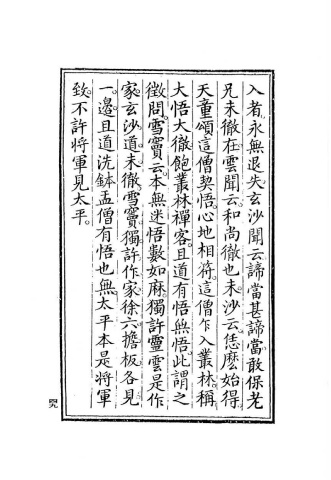 入者。永無退失。玄沙聞云。諦當甚諦當。敢保老
兄未徹在。雲聞云。和尚徹也未。沙云。恁麼始得。
天童頌這僧契悟。心地相符。這僧乍入叢林。稱
大悟大徹。飽叢林禪客。且道有悟無悟。此謂之
徵問。雪竇云。本無迷悟數如麻。獨許靈雲是作
家。玄沙道未徹。雪竇獨許作家。徐六擔板。各見
一邊。且道洗鉢盂僧有悟也無。太平本是將軍
致。不許將軍見太平。
四九